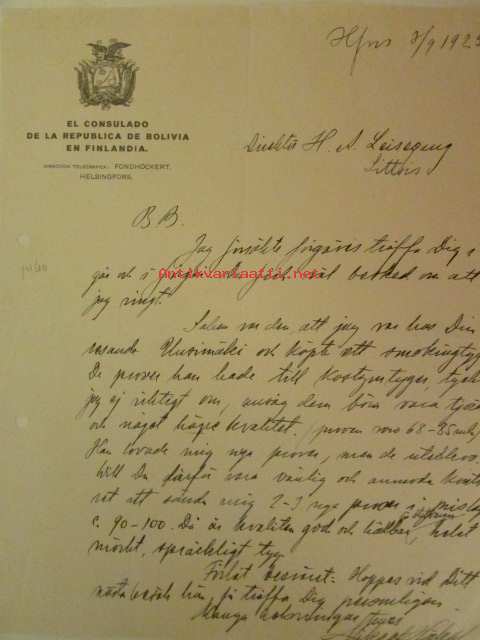 Hfors 7/9 192
EL CONSULADO
DE LA REPUBLICA DE BOLIVIA
EN FINLANDIA.
DIRECCION TELEGRAFICA: FONDHÖCKERT,
HELSINGFORS.
Direktör H. A. Leisegang
Littois
B B.
Jag försökte förgäves träffa Dig i
går och i
att
jag ringt.
Saken var den att jag var hos Din
Uusimäki och köpte ett smokingtyg
De prover han hade till kostymtyger, tyck
jag ej riktigt om, ansåg dem böra vara
och något högre kvalitet.
Han lovade mig nya prover, men de uteblevo.
vill Du därför vara vänlig och anmoda
att sända mig 2-3 nya prover i prislag
c. 90-100. Då är kvaliten god och hållbar, helst
mörkt, spräckligt tyg
Förlåt besväret. Hoppas vid Ditt
nästa besök här, få träffa Dig personligen
Många hälsningar